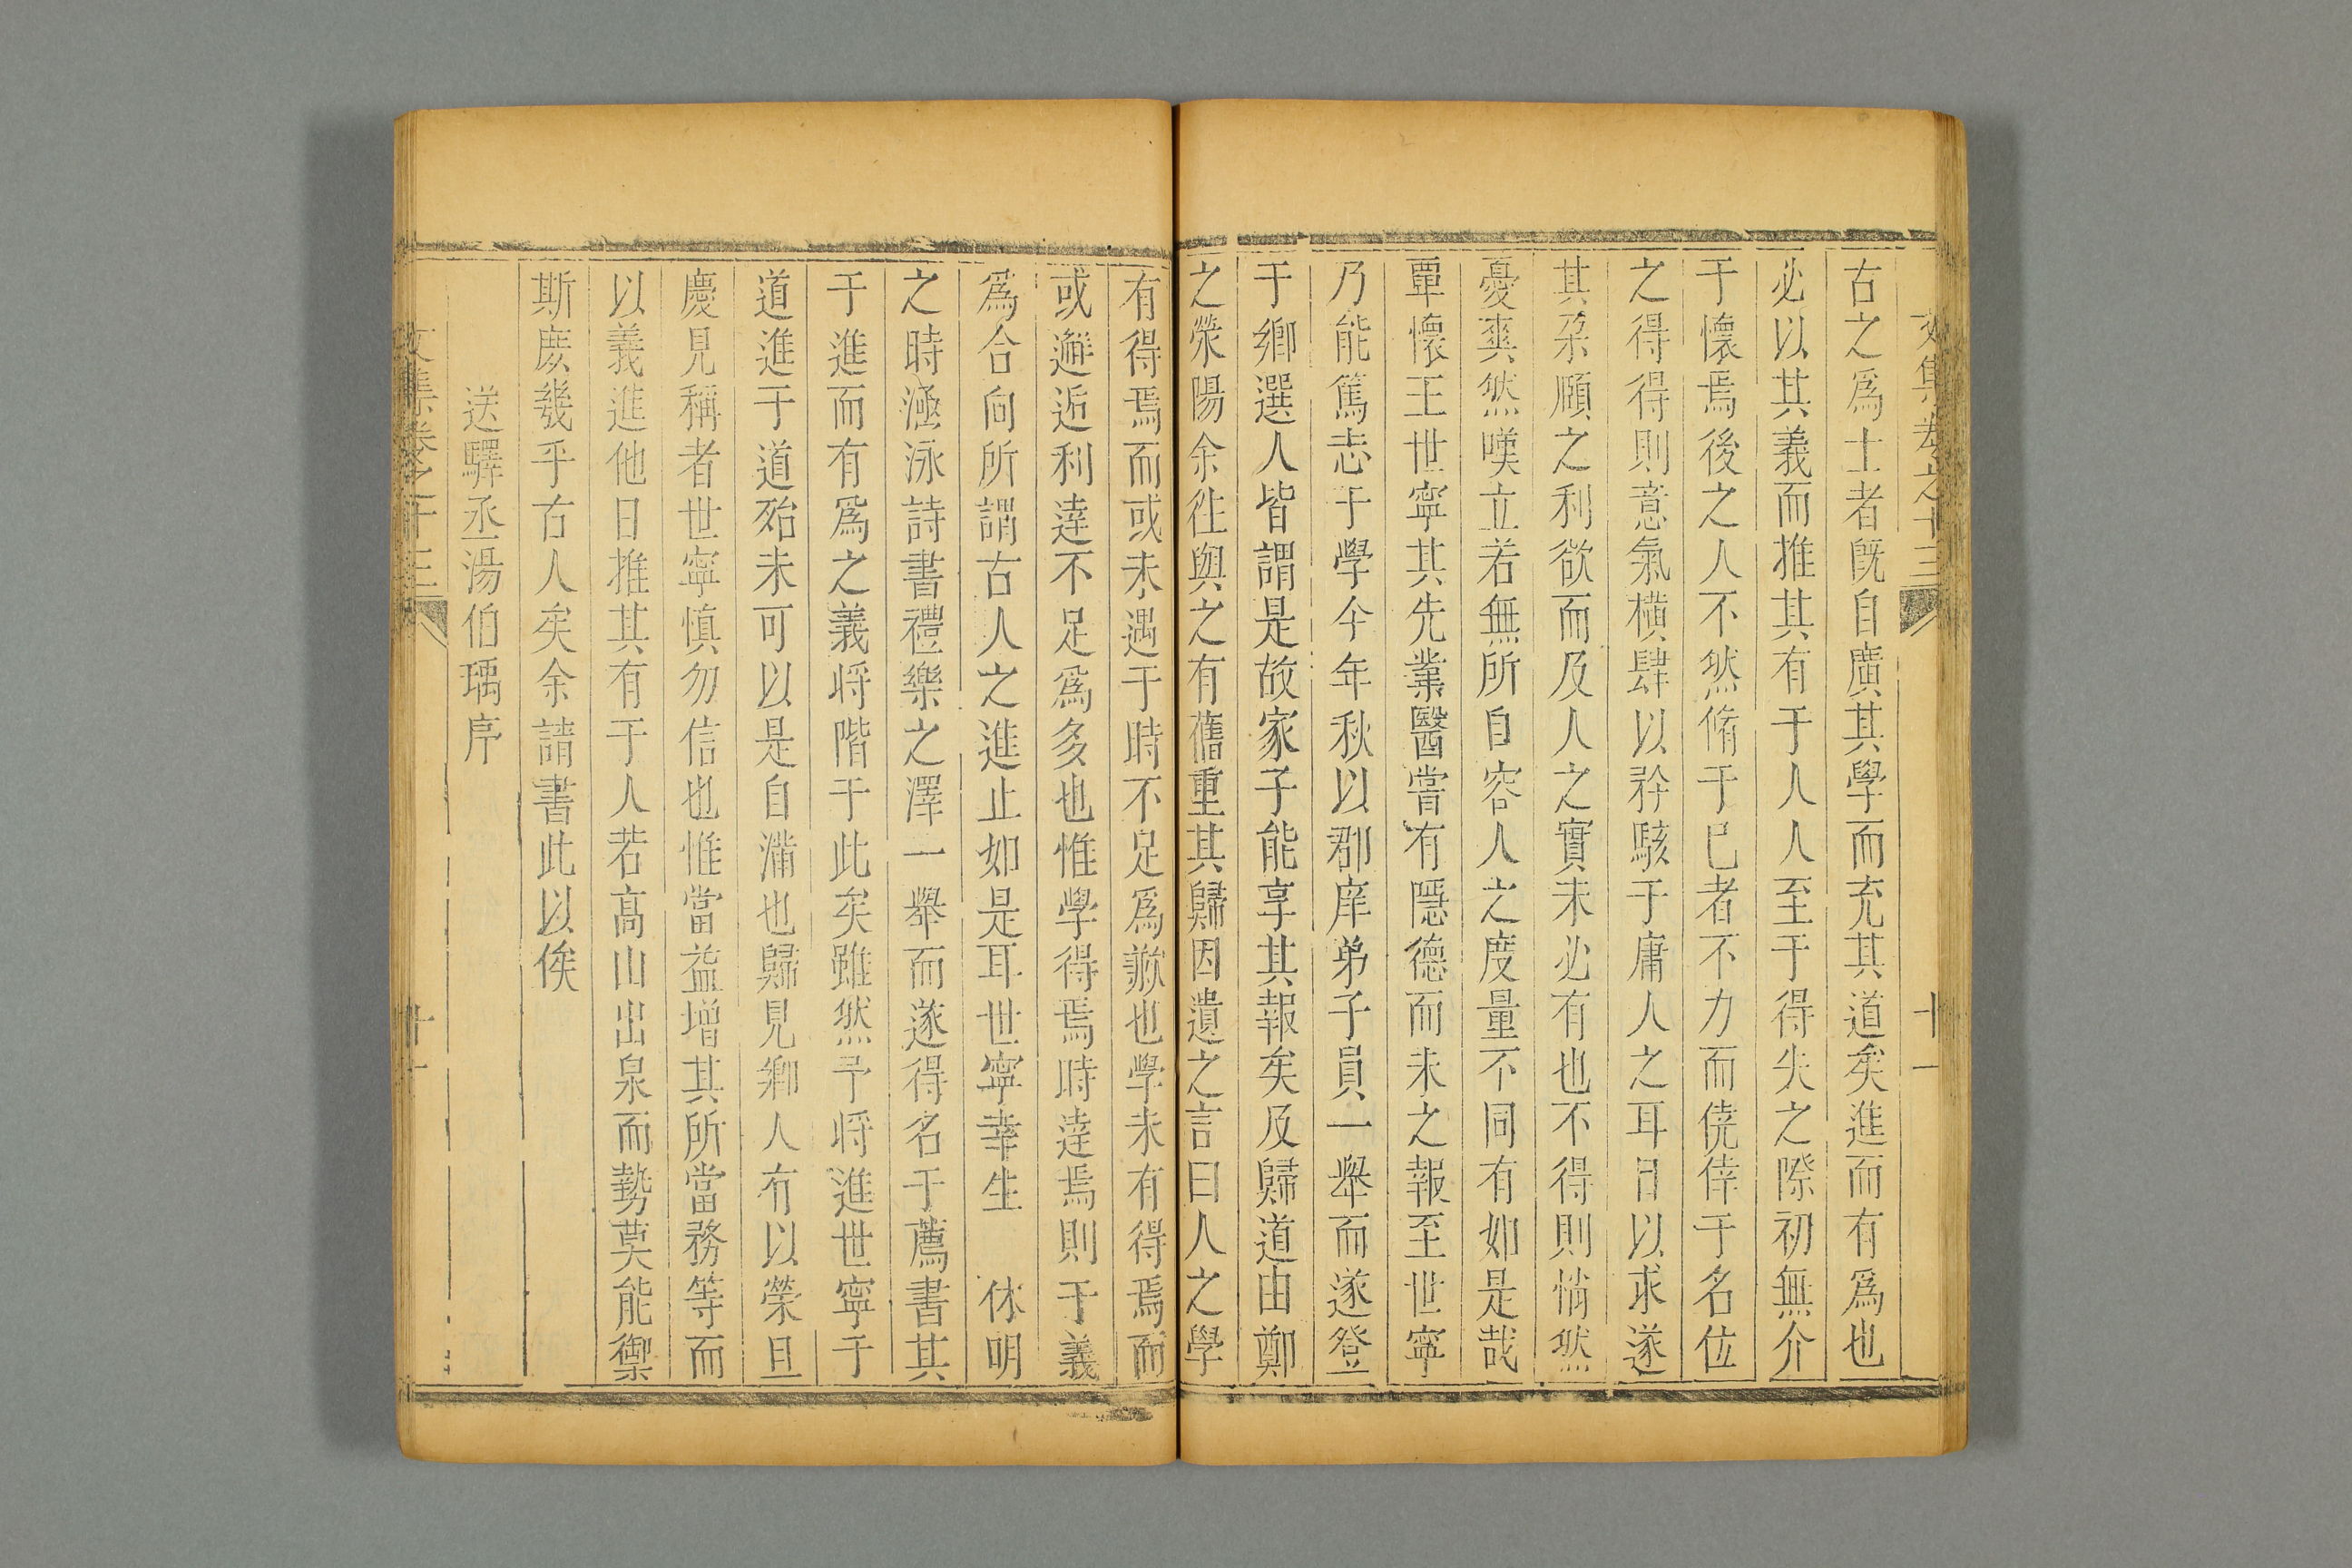 文集卷之十三
十一
古之爲士者既自廣其學而充其道矣進而有爲也
必以其義而推其有于人人至于得失之際初無介
于懷焉後之人不然脩于已者不力而僥倖于名位
之得得則意氣橫肆以矜駭于庸人之耳目以求遂
其朶頤之利欲而及人之實未必有也不得則悄然
憂爽然嘆立若無所自容人之度量不同有如是哉
覃懷王世寧其先業醫嘗有隱德而未之報至世寧
乃能篤志于學今年秋以郡庠弟子員一舉而遂登
于鄉選人皆謂是故家子能享其報矣及歸道由鄭
之滎陽余徃與之有舊重其歸因遺之言曰人之學
有得焉而或未遇于時不足爲歉也學未有得焉而
或邂近利達不足爲多也惟學得焉時達焉則于義
爲合向所謂古人之進止如是耳世寧幸生　休明
之時涵泳詩書禮樂之澤一舉而遂得名于薦書其
于進而有爲之義將階于此矣雖然予將進世寧于
道進于道殆未可以是自滿也歸見鄉人有以榮且
慶見稱者世寧慎勿信也惟當益增其所當務等而
以義進他日推其有于人若高山出泉而勢莫能禦
斯庶幾乎古人矣余請書此以俟
送驛丞湯伯瑀序
文集卷之十三
十一